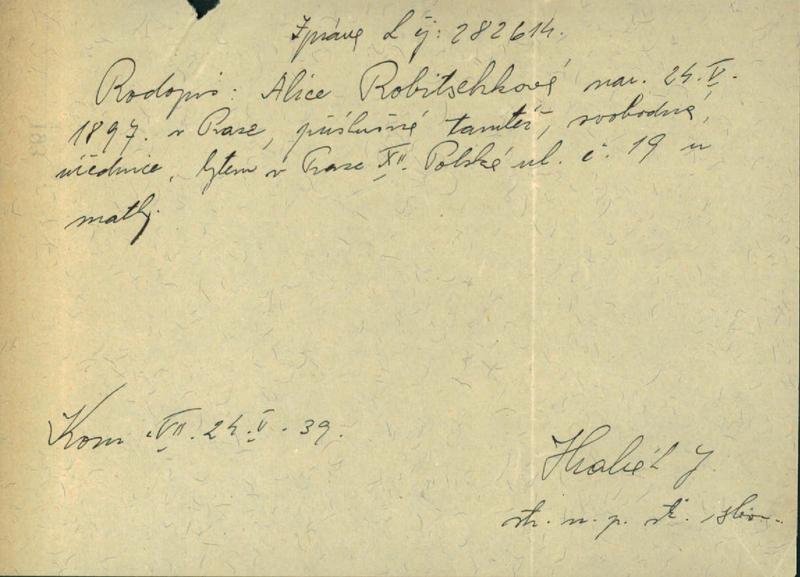 Zpráva k čj: 282614.
Rodopis: Alice Robitschková nar. 24.V.
1897. v Praze, příslušná tamtéž, svobodná,
úřednice, bytem v Praze XII. Polská ul. č. 19 u
matky.
Kom. VII. 24.V. 39.
J.
str. n. p. st.